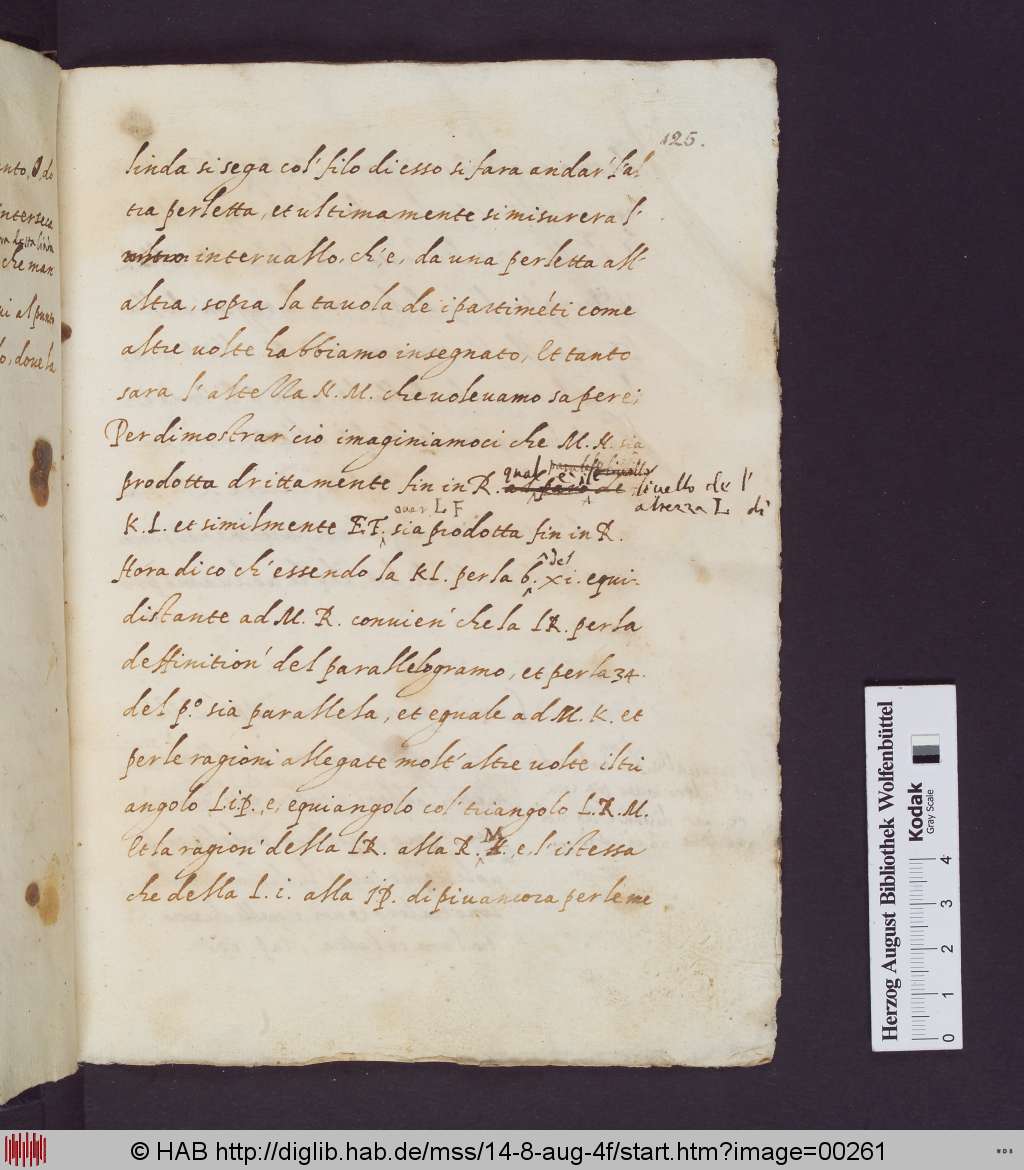 125.
linda si sega col' filo di esso si fara andar' l'al
tra perletta, et ultimamente si misurera l'
intervallo, ch'e, da una perletta all'
altra, sopra la tavola de i partiméti come
altre uolte habbiamo insegnato, Et tanto
sara l'altezza N. M. che uolevamo sapere;
Per dimostrar' ciò imaginiamoci che M. N. sia
prodotta drittamente fin in R. qual è
livello de l'
altezza L di
K L. et similmente EF. ouer LF sia prodotta fin in R.
Hora dico ch'essendo la KL. per la 6. del xi. equi-
distante ad M. R. convien' che la IR. per la
deffinition' del parallelogramo, et per la 34.
del p.º sia parallela, et eguale ad M. K. et
per le ragioni allegate molt'altre uolte il tri
angolo L.i.P. e, equiangolo col' triangolo L.R.M.
Et la ragion' della IR. alla R. M. e, l'istessa
che della L. i. alla IP. di piu ancora per le me
anto, D, do
interseca
che man
ui al punto
o, doue la
Herzog August Bibliothek Wolfenbüttel
Kodak
Gray Scale
0 1 2 3 4
© HAB http://diglib.hab.de/mss/14-8-aug-4f/start.htm?image=00261
WDB